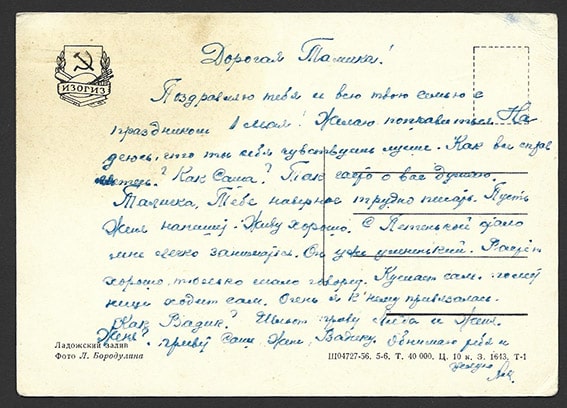 ИЗОГИЗ
Дорогая Талика!
Поздравляю тебя и всю твою семью с
праздником 1 мая! Желаю поправиться. На
деюсь, что ты себя чувствуешь лучше. Как вы справ
ляетесь? Как Саша? Так часто о вас думаю.
Талика, Тебе наверное трудно писать. Пусть
Женя напишет. Живу хорошо. С Петенькой
мне легко заниматься. Он уже умненький. Растёт
хорошо, только мало говорит. Кушает сам.
ходит сам. Очень я к нему привязалась.
Как Вадик? Шлют привет и Женя.
Жене? привет Саше, Жене, Вадику. Обнимаю тебя и
целую
Ладожский залив
Фото Л. Бородулина
Ш04727-56. 5-6. Т. 40 000. Ц. 10 к. З. 1643. Т-1